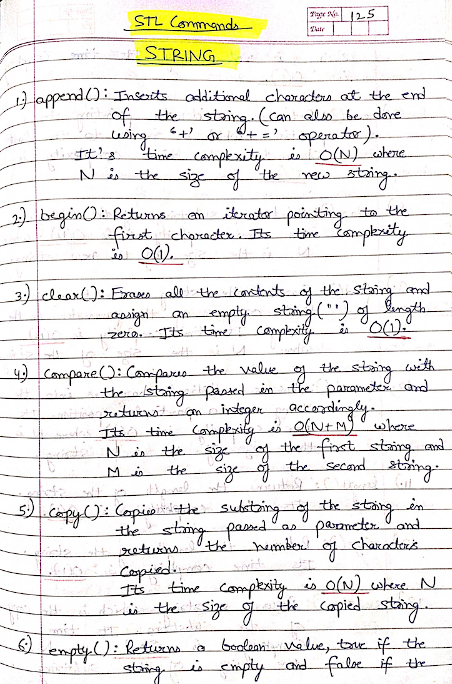 STL Commands
Page No. 125
Date
STRING
1.) append(): Inserts additional characters at the end
of the string. (can also be done
using '+' or '+=' operator).
It's time complexity is O(N) where
N is the size of the new string.
2.) begin(): Returns an iterator pointing to the
first character. Its time complexity
is O(1).
3.) clear(): Erases all the contents of the string and
assign an empty string ("") of length
zero. Its time complexity is O(1).
4.) compare(): Compares the value of the string with
the string passed in the parameter and
returns an integer accordingly.
Its time complexity is O(N+M) where
N is the size of the first string and
M is the size of the second string.
5.) copy(): Copies the substring of the string in
the string passed as parameter and
returns the number of characters
copied.
Its time complexity is O(N) where N
is the size of the copied string.
6.) empty(): Returns a boolean value, true if the
string is empty and false if the